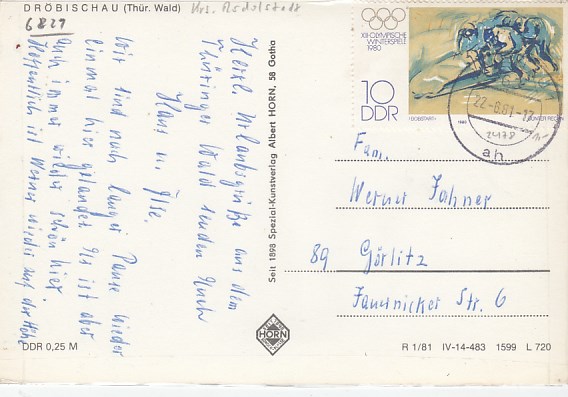 DRÖBISCHAU (Thür. Wald)
Krs. Rudolstadt
6821
Herzl. Urlaubsgrüße aus dem
Thüringer Wald senden Euch
Hans u. Ilse.
Wir sind nach langer Pause wieder
einmal hier gelandet. Es ist aber
auch immer wieder schön hier.
Hoffentlich ist Werner wieder auf der Höhe
Seit 1898 Spezial-Kunstverlag Albert HORN, 58 Gotha
HORN
DDR 0,25 M
XIII. OLYMPISCHE
WINTERSPIELE
1980
10
DDR
22.-8.81-17
ah
Fam.
Werner Jahner
89 Görlitz
Jauernicker Str. 6
R 1/81 IV-14-483 1599 L 720